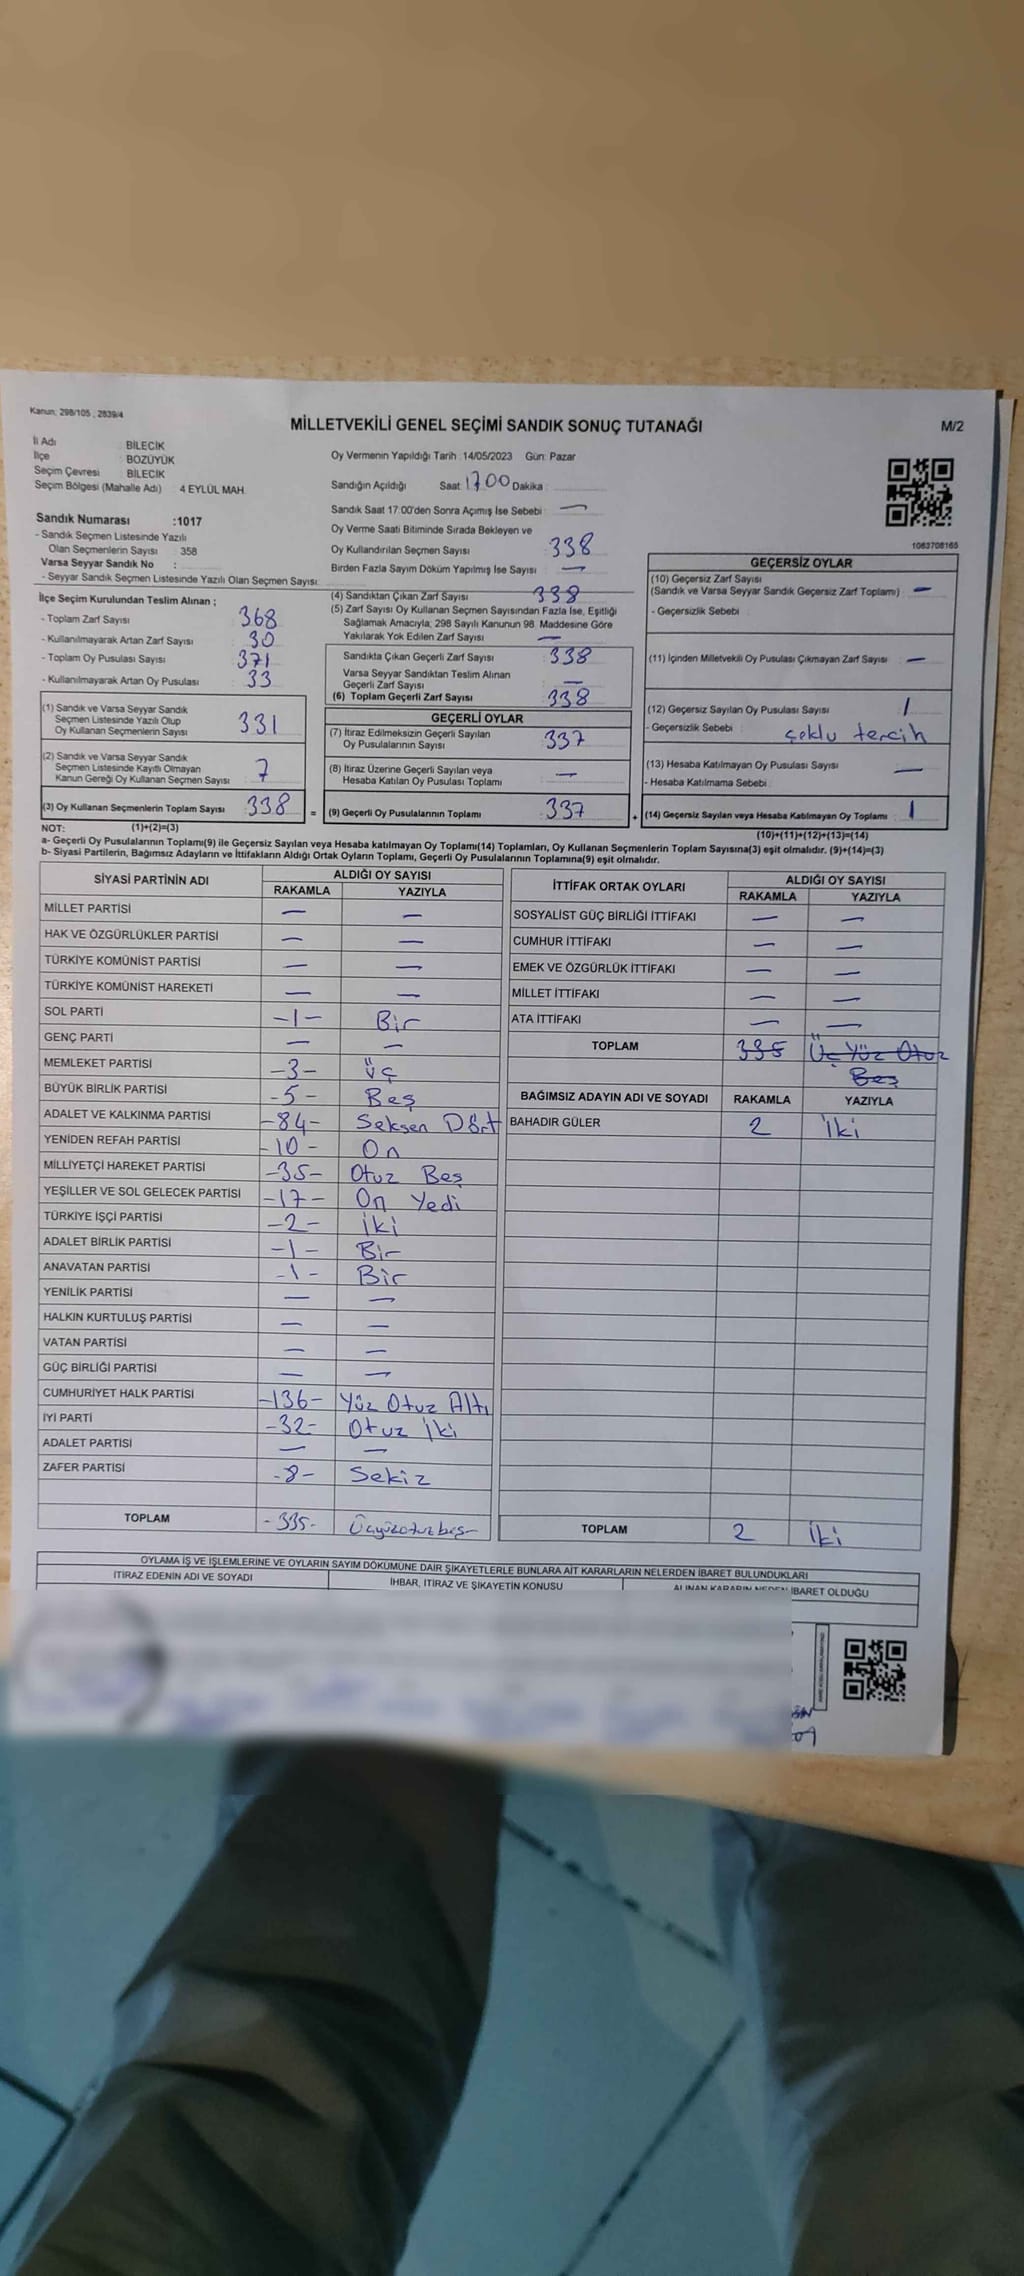 Kanun; 298/105 ; 2839/4
MİLLETVEKİLİ GENEL SEÇİMİ SANDIK SONUÇ TUTANAĞI
M/2
İl Adı : BİLECİK
İlçe : BOZÜYÜK
Seçim Çevresi : BİLECİK
Seçim Bölgesi (Mahalle Adı) : 4 EYLÜL MAH.
Sandık Numarası :1017
- Sandık Seçmen Listesinde Yazılı
Olan Seçmenlerin Sayısı : 358
Varsa Seyyar Sandık No :
- Seyyar Sandık Seçmen Listesinde Yazılı Olan Seçmen Sayısı:
Oy Vermenin Yapıldığı Tarih :14/05/2023 Gün: Pazar
Sandığın Açıldığı Saat 17.00 Dakika :
Sandık Saat 17:00'den Sonra Açımış İse Sebebi : —
Oy Verme Saati Bitiminde Sırada Bekleyen ve
Oy Kullandırılan Seçmen Sayısı : 338
Birden Fazla Sayım Döküm Yapılmış İse Sayısı : —
1063708165
İlçe Seçim Kurulundan Teslim Alınan ;
- Toplam Zarf Sayısı : 368
- Kullanılmayarak Artan Zarf Sayısı : 30
- Toplam Oy Pusulası Sayısı : 371
- Kullanılmayarak Artan Oy Pusulası : 33
(1) Sandık ve Varsa Seyyar Sandık
Seçmen Listesinde Yazılı Olup
Oy Kullanan Seçmenlerin Sayısı : 331
(2) Sandık ve Varsa Seyyar Sandık
Seçmen Listesinde Kayıtlı Olmayan
Kanun Gereği Oy Kullanan Seçmen Sayısı : 7
(3) Oy Kullanan Seçmenlerin Toplam Sayısı : 338
(4) Sandıktan Çıkan Zarf Sayısı : 338
(5) Zarf Sayısı Oy Kullanan Seçmen Sayısından Fazla İse, Eşitliği
Sağlamak Amacıyla; 298 Sayılı Kanunun 98. Maddesine Göre
Yakılarak Yok Edilen Zarf Sayısı : —
Sandıkta Çıkan Geçerli Zarf Sayısı : 338
Varsa Seyyar Sandıktan Teslim Alınan
Geçerli Zarf Sayısı : —
(6) Toplam Geçerli Zarf Sayısı : 338
GEÇERLİ OYLAR
(7) İtiraz Edilmeksizin Geçerli Sayılan
Oy Pusulalarının Sayısı : 337
(8) İtiraz Üzerine Geçerli Sayılan veya
Hesaba Katılan Oy Pusulası Toplamı : —
= (9) Geçerli Oy Pusulalarının Toplamı : 337
GEÇERSİZ OYLAR
(10) Geçersiz Zarf Sayısı
(Sandık ve Varsa Seyyar Sandık Geçersiz Zarf Toplamı) : —
- Geçersizlik Sebebi :
(11) İçinden Milletvekili Oy Pusulası Çıkmayan Zarf Sayısı : —
(12) Geçersiz Sayılan Oy Pusulası Sayısı : 1
- Geçersizlik Sebebi : çoklu tercih
(13) Hesaba Katılmayan Oy Pusulası Sayısı : —
- Hesaba Katılmama Sebebi :
+ (14) Geçersiz Sayılan veya Hesaba Katılmayan Oy Toplamı : 1
NOT: (1)+(2)=(3)
(10)+(11)+(12)+(13)=(14)
a- Geçerli Oy Pusulalarının Toplamı(9) ile Geçersiz Sayılan veya Hesaba katılmayan Oy Toplamı(14) Toplamları, Oy Kullanan Seçmenlerin Toplam Sayısına(3) eşit olmalıdır. (9)+(14)=(3)
b- Siyasi Partilerin, Bağımsız Adayların ve İttifakların Aldığı Ortak Oyların Toplamı, Geçerli Oy Pusulalarının Toplamına(9) eşit olmalıdır.
SİYASİ PARTİNİN ADI ALDIĞI OY SAYISI
RAKAMLA YAZIYLA
MİLLET PARTİSİ — —
HAK VE ÖZGÜRLÜKLER PARTİSİ — —
TÜRKİYE KOMÜNİST PARTİSİ — —
TÜRKİYE KOMÜNİST HAREKETİ — —
SOL PARTİ -1- Bir
GENÇ PARTİ — —
MEMLEKET PARTİSİ -3- Üç
BÜYÜK BİRLİK PARTİSİ -5- Beş
ADALET VE KALKINMA PARTİSİ -84- Seksen Dört
YENİDEN REFAH PARTİSİ -10- On
MİLLİYETÇİ HAREKET PARTİSİ -35- Otuz Beş
YEŞİLLER VE SOL GELECEK PARTİSİ -17- On Yedi
TÜRKİYE İŞÇİ PARTİSİ -2- İki
ADALET BİRLİK PARTİSİ -1- Bir
ANAVATAN PARTİSİ -1- Bir
YENİLİK PARTİSİ — —
HALKIN KURTULUŞ PARTİSİ — —
VATAN PARTİSİ — —
GÜÇ BİRLİĞİ PARTİSİ — —
CUMHURİYET HALK PARTİSİ -136- Yüz Otuz Altı
İYİ PARTİ -32- Otuz İki
ADALET PARTİSİ — —
ZAFER PARTİSİ -8- Sekiz
TOPLAM -335- Üçyüzotuzbeş
İTTİFAK ORTAK OYLARI ALDIĞI OY SAYISI
RAKAMLA YAZIYLA
SOSYALİST GÜÇ BİRLİĞİ İTTİFAKI — —
CUMHUR İTTİFAKI — —
EMEK VE ÖZGÜRLÜK İTTİFAKI — —
MİLLET İTTİFAKI — —
ATA İTTİFAKI — —
TOPLAM 335 Üç Yüz Otuz
Beş
BAĞIMSIZ ADAYIN ADI VE SOYADI RAKAMLA YAZIYLA
BAHADIR GÜLER 2 İki
TOPLAM 2 İki
OYLAMA İŞ VE İŞLEMLERİNE VE OYLARIN SAYIM DÖKÜMÜNE DAİR ŞİKAYETLERLE BUNLARA AİT KARARLARIN NELERDEN İBARET BULUNDUKLARI
İTİRAZ EDENİN ADI VE SOYADI İHBAR, İTİRAZ VE ŞİKAYETİN KONUSU ALINAN KARARIN NEDEN İBARET OLDUĞU